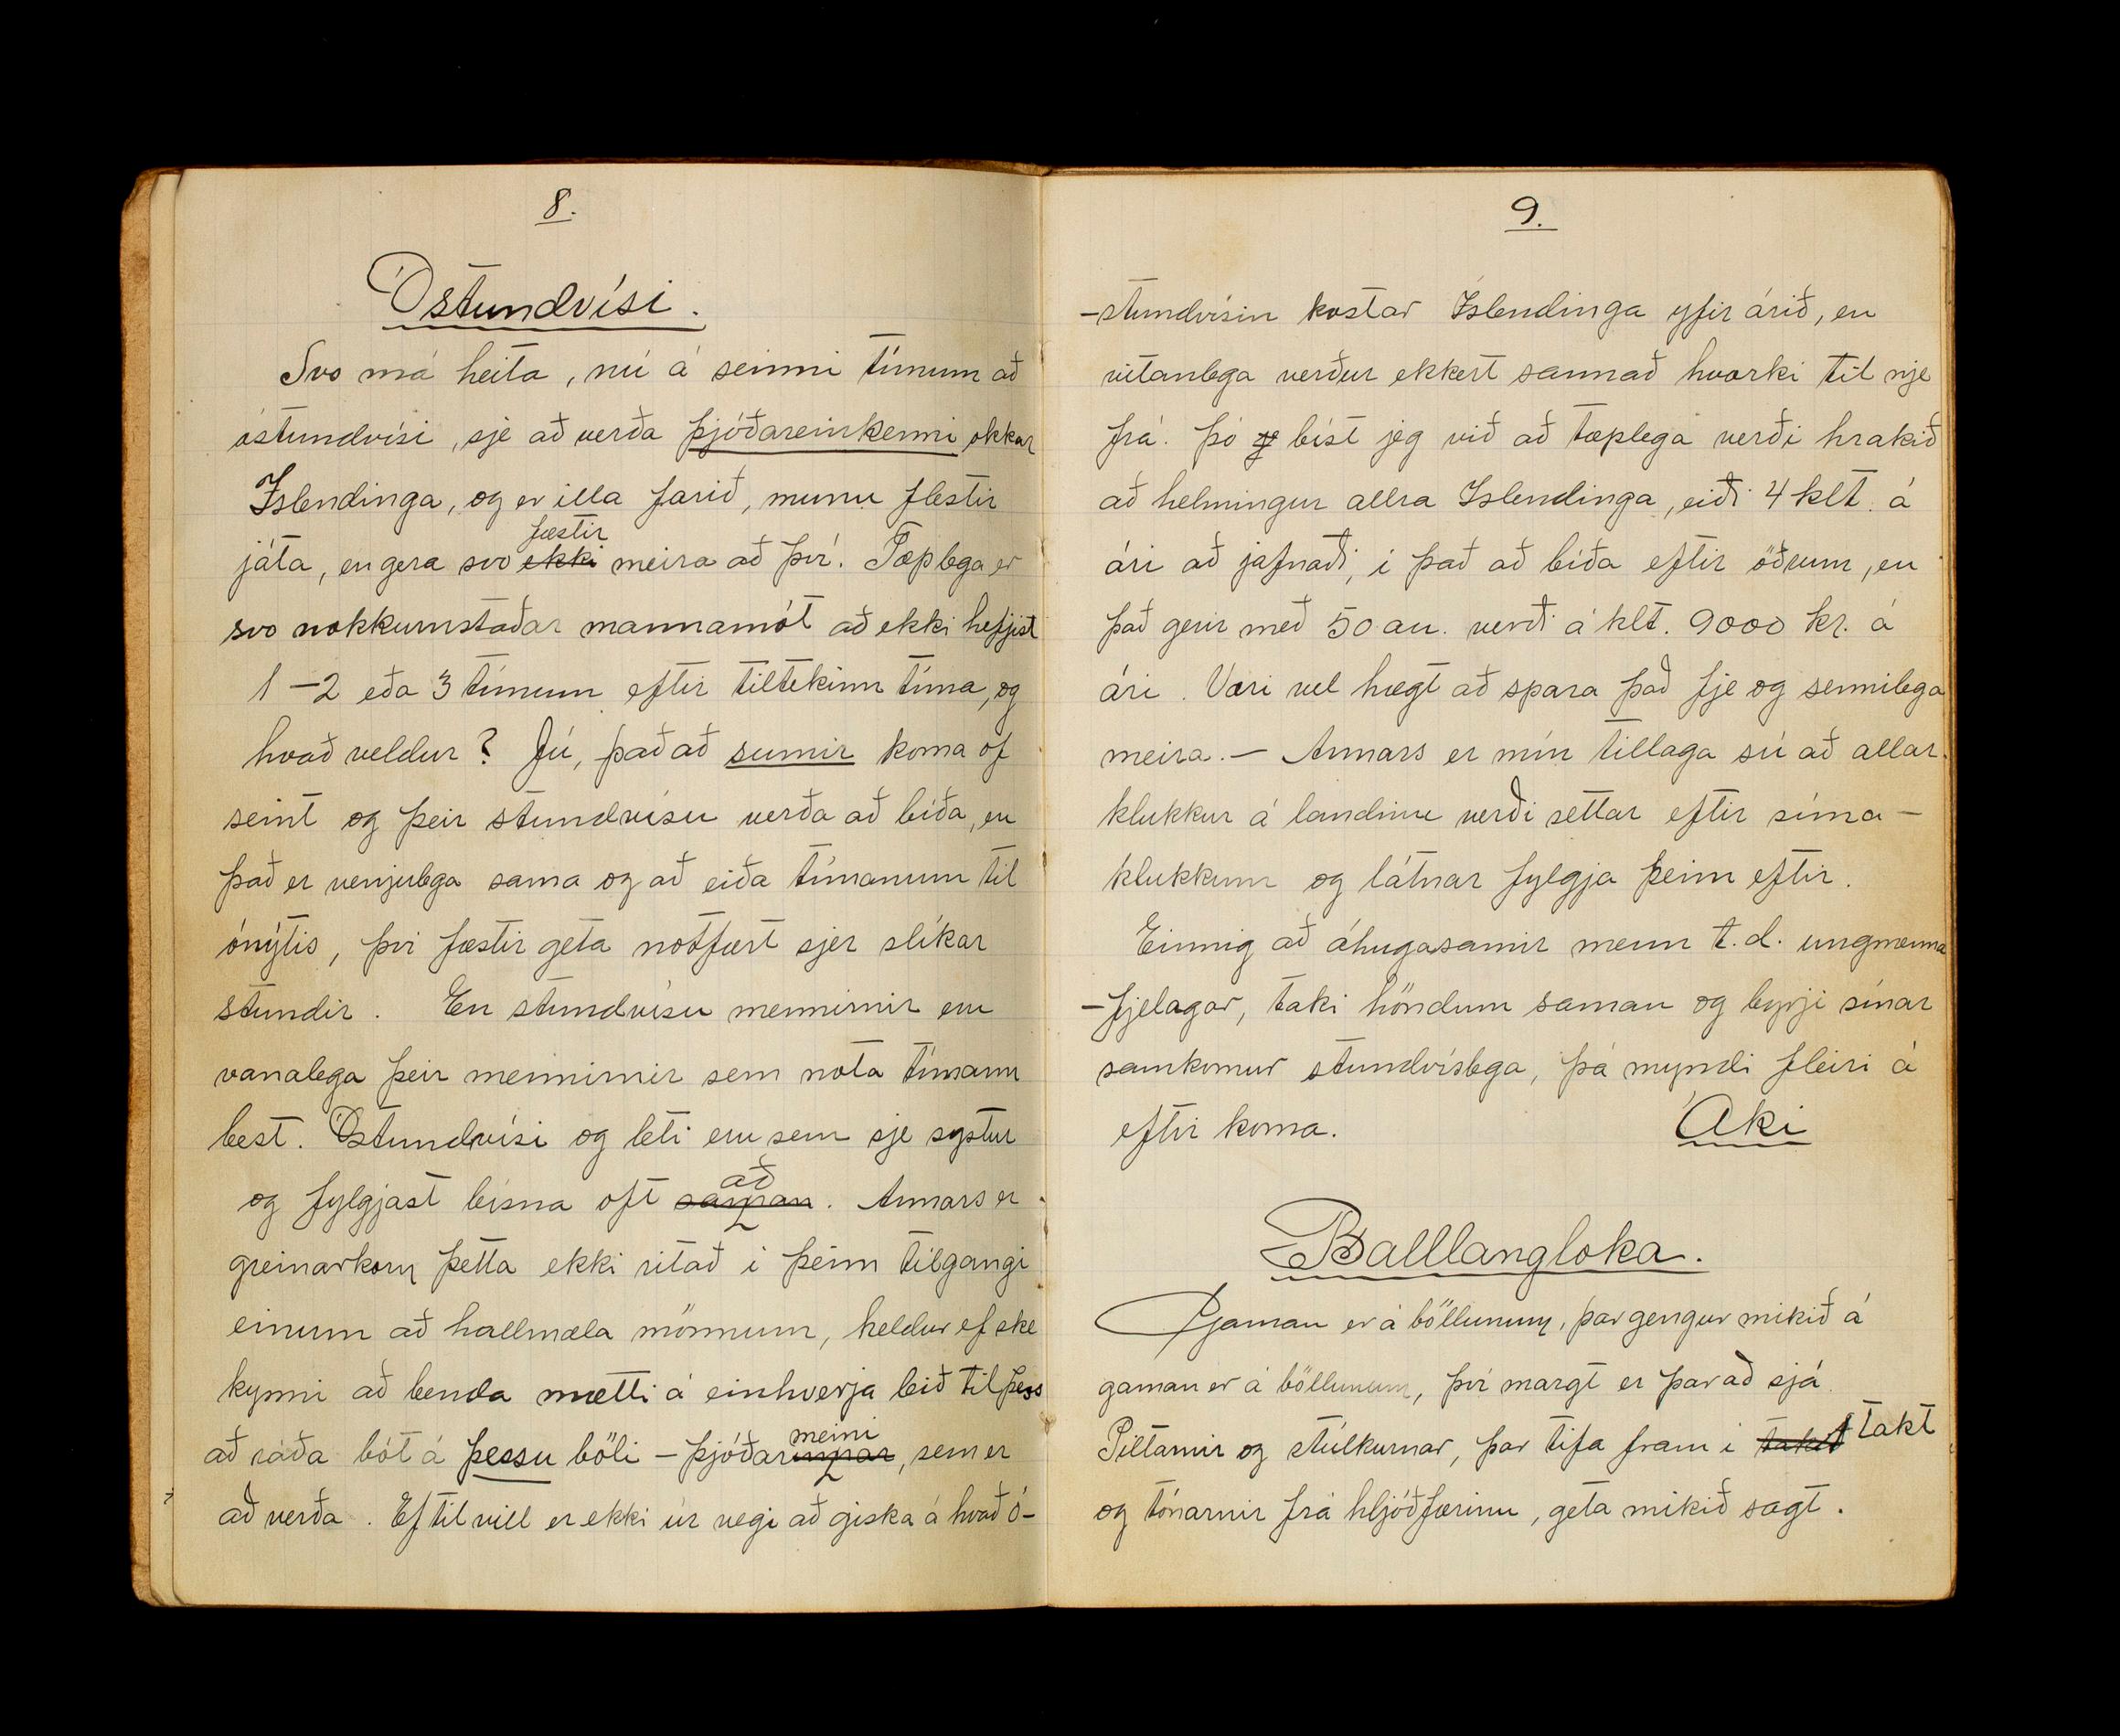 8.
Óstundvísi.
Svo má heita, nú á seinni tímum að
óstundvísi, sje að verða þjóðareinkenni okkar
Íslendinga, og er illa farið, munu flestir
játa, en gera svo ekki fæstir meira að því. Tæplega er
svo nokkurnstaðar mannamót að ekki hefjist
1-2 eða 3 tímum eftir tiltekinn tíma, og
hvað veldur? Jú, það að sumir koma of
seint og þeir stundvísu verða að bíða, en
það er venjulega sama og að eiða tímanum til
ónýtis, því fæstir geta notfært sjer slíkar
stundir. En stundvísu mennirnir eru
vanalega þeir mennirnir sem nota tímann
best. Óstundvísi og leti eru sem sje systur
og fylgjast bísna oft saman að. Annars er
greinarkorn þetta ekki ritað í þeim tilgangi
einum að hallmæla mönnum, heldur ef ske
kynni að benda mætti á einhverja leið til þess
að ráða bót á þessu böli - þjóðar meini, sem er
að verða. Ef til vill er ekki úr vegi að giska á hvað ó-
9.
-stundvísin kostar Íslendinga yfir árið, en
vitanlega verður ekkert sannað hvorki til nje
frá. Þó bíst jeg við að tæplega verði hrakið
að helmingur allra Islendinga, eiði 4 klt. á
ári að jafnaði, í það að bíða eftir öðrum, en
það gerir með 50 au. verði á klt. 9000 kr. á
ári. Væri vel hægt að spara það fje og sennilega
meira. - Annars er mín tillaga sú að allar
klukkur á landinu verði settar eftir síma-
klukkum og látnar fylgja þeim eftir.
Einnig að áhugasamir menn t.d. ungmenna
-fjelagar, taki höndum saman og byrji sínar
samkomur stundvíslega, þá myndi fleiri á
eftir koma. Áki
Balllangloka.
Gaman er á böllunum, þar gengur mikið á
gaman er á böllunum, því margt er þar að sjá
Piltarnir og stúlkurnar, þar tifa fram í takt takt
og tónarnir frá hljóðfærinu, geta mikið sagt.